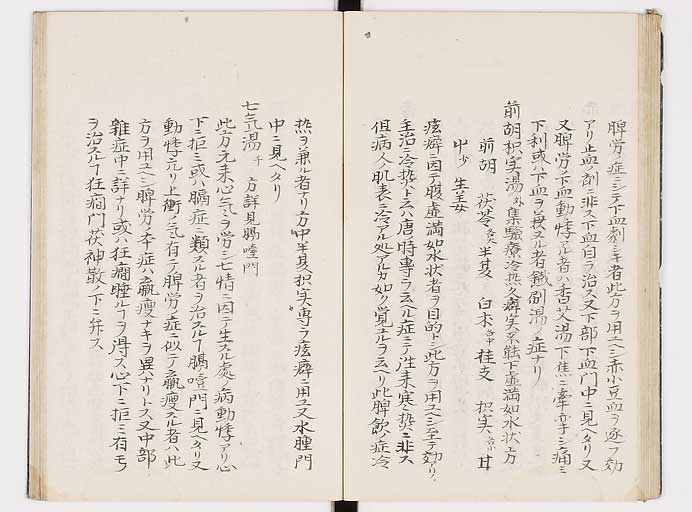 脾労ノ症ニシテ下血劇シキ者此方ヲ用ユヘシ赤小豆血ヲ逐フ効
アリ止血ノ剤ニ非ス下血自ラ治ス又下部下血門中ニ見ヘタリ又
又脾労ノ下血動悸アル者ハ香艾湯下焦ニ牽引シ痛ミ
下利或ハ下血ヲ兼スル者鐵倒湯ノ症ナリ
前胡枳実湯 外集驗療冷热久癖実不能下虚満如水状方
前胡 茯苓 半夏 白朮 桂支 枳実 甘
中 少 生姜
痃癖ニ因テ腹虚満如水状者ヲ目的トシ此方ヲ用ユヘシ至テ効アリ
主治ニ冷热ト云ハ唐ノ時専ラ云ヘル症ニテ往来寒热ニ非ス
但病人ノ肌表ニ冷アル処アルカ如ク覚エルヲ云ヘリ此脾飲ノ症冷
热ヲ兼ル者ナリ方中半夏枳実専ラ痃癖ニ用ユ又水腫門
中ニ見ヘタリ
七気湯 千 方詳見膈噎門
此方元来心気ヲ労シ七情ニ因テ生スル處ノ病動悸アリ心
下ニ拒ミ或ハ膈症ニ類スル者ヲ治スル丁膈噎門ニ見ヘタリ又
動悸亢リ上衝ノ気有テ脾労ノ症ニ似テ羸瘦スル者ハ此
方ヲ用ユヘシ脾労ノ本症ハ羸瘦ナキヲ異ナリトス又中部
雜症中ニ詳ナリ或ハ狂癇睡ル丁ヲ得ス心下ニ拒ミ有モ
ヲ治スル丁狂癇門茯神散ノ下ニ弁ス